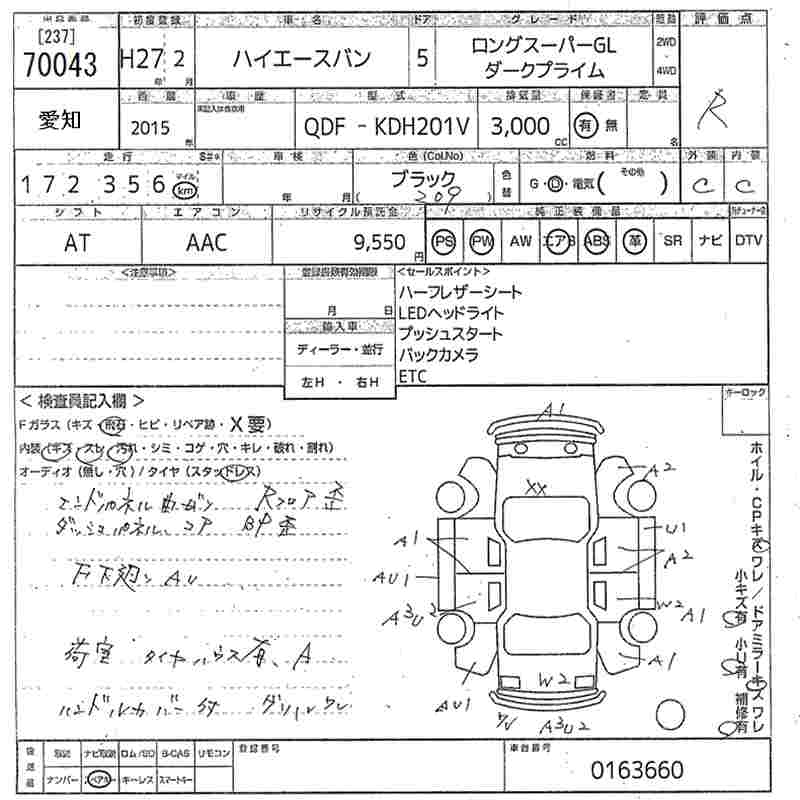 出品番号 初度登録 車名 ドア グレード 評価点
[237]
70043 H27年 2月 ハイエースバン 5 ロングスーパーGL
ダークプライム
2WD
4WD
R
愛知
2015年
車歴
型式
QDF - KDH201V
排気量
3,000 CC
保証書
有 無
定員
名
走行
172356 マイル km
車検
年 月
色(Col.No)
ブラック
( 209 )
色替
燃料
G・D・電気( その他 )
外装 内装
C C
シフト エアコン リサイクル預託金 純正装備品
AT AAC 9,550円 PS PW AW エアB ABS 革 SR ナビ DTV
<注意事項>
登録書類有効期限
月 日
輸入車
ディーラー・並行
左H ・ 右H
<セールスポイント>
ハーフレザーシート
LEDヘッドライト
プッシュスタート
バックカメラ
ETC
キーロック
<検査員記入欄>
Fガラス(キズ・飛石・ヒビ・リペア跡・X要)
内装(キズ・スレ・汚れ・シミ・コゲ・穴・キレ・破れ・割れ)
オーディオ(無し・穴)/タイヤ(スタッドレス)
エンドパネル曲 Rフロア歪
ダッシュパネル、コア BP歪
F下廻り AU
荷室 タイヤハウス有、A
ハンドルカバー
A1
XX
A2
U1
A1
A2
AU1
A3U2
W2
A1
A1
AU1
W2
A3U2
ホイル・CPキズワレ/ドアミラーキズワレ
小キズ有 小U有 補修有
後送品
取説 ナビ取説 ロム/SD B-CAS リモコン
ナンバー スペアキー キーレス スマートキー
登録番号
車台番号
0163660